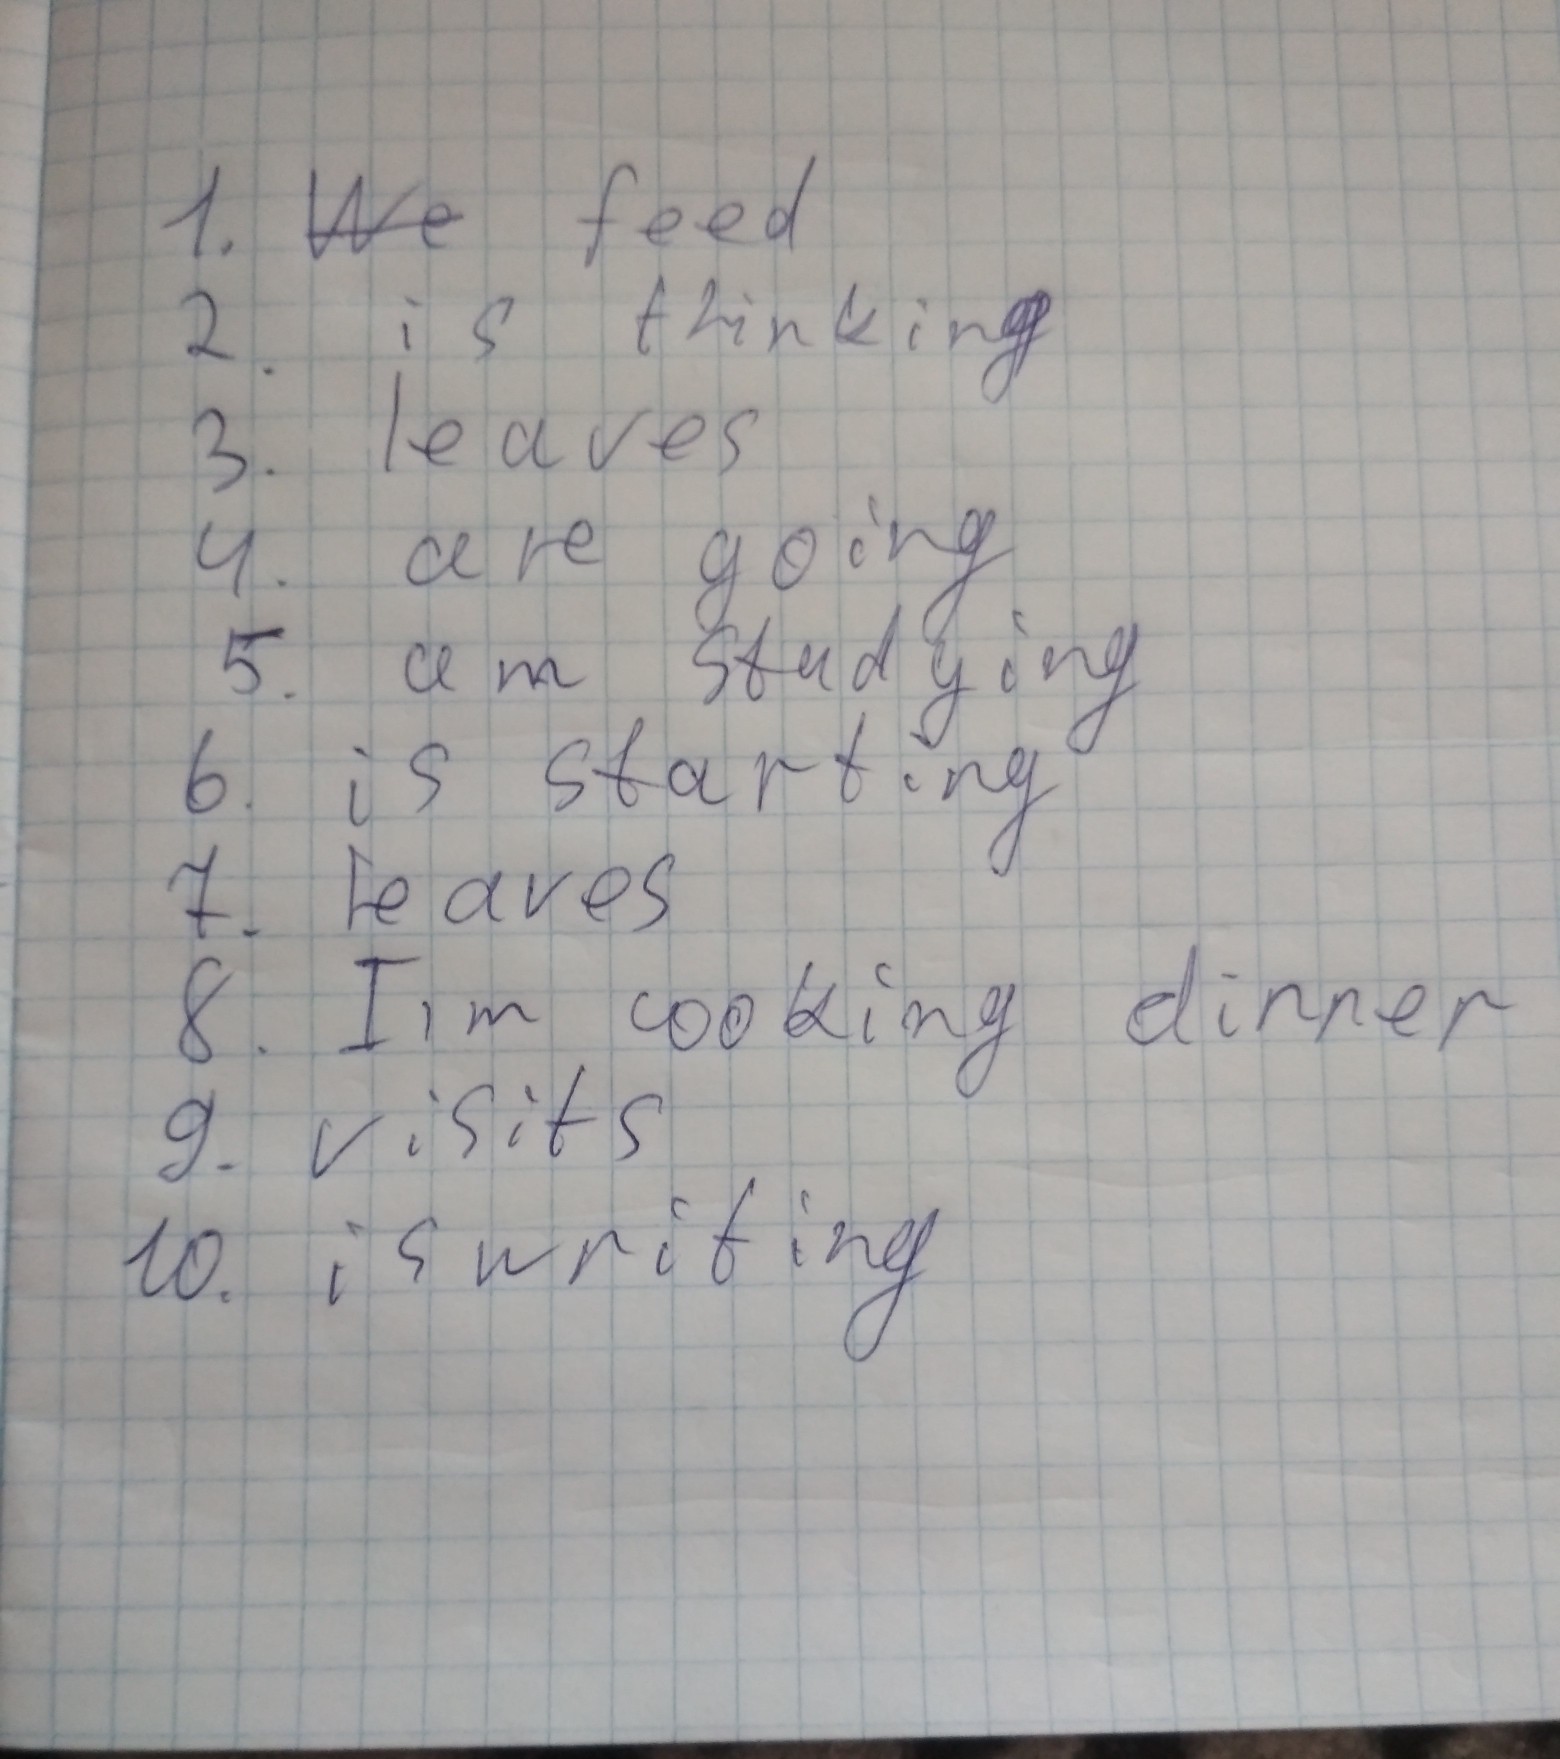 1. We feed
2. is thinking
3. leaves
4. are going
5. am studying
6. is starting
7. leaves
8. I'm cooking dinner
9. visits
10. is writing